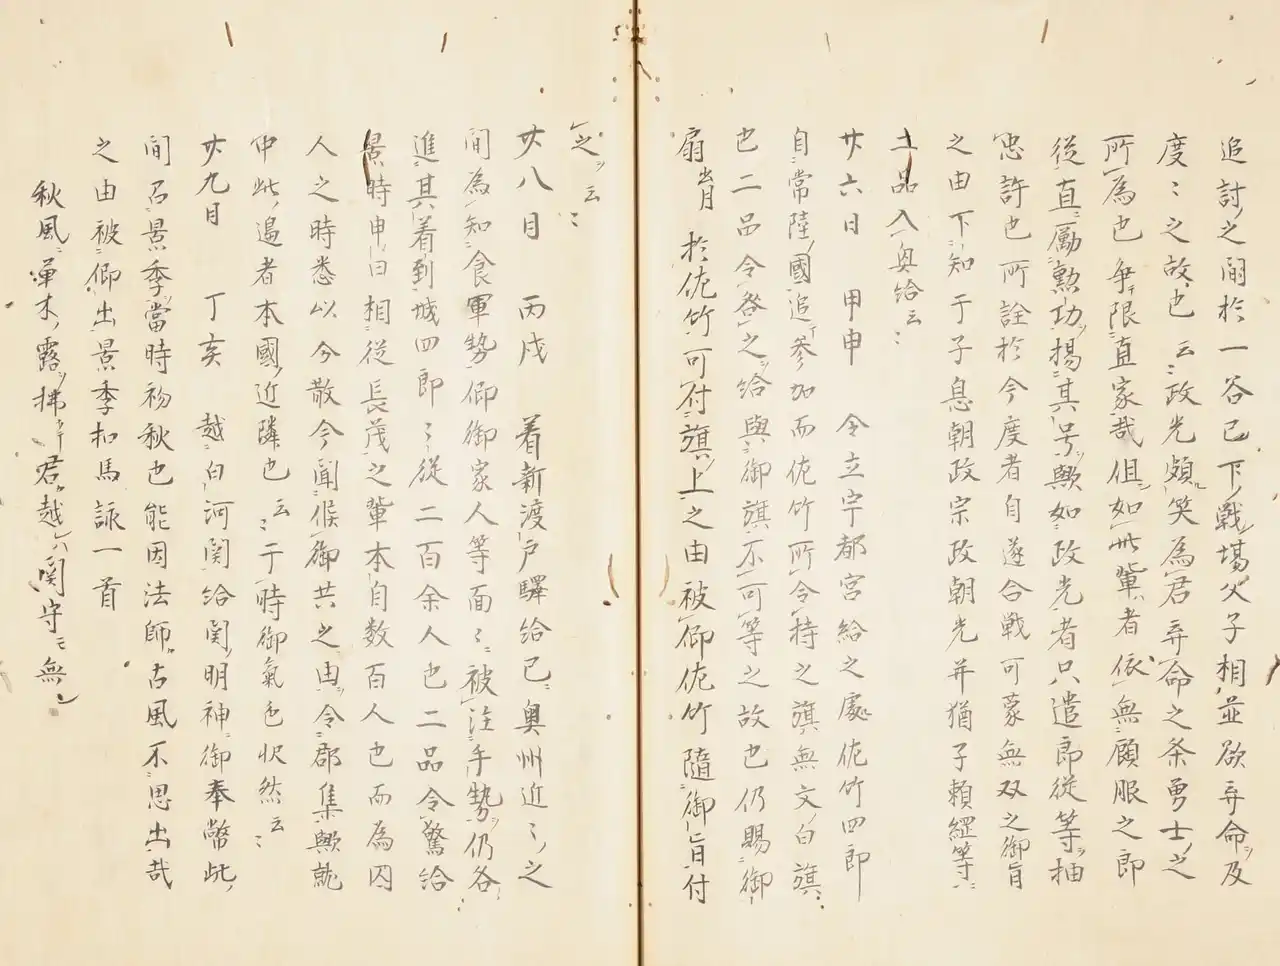 追討之間於一谷已下戦場父子相並欲弃命及
度〻之故也云〻政光頗笑為君弃命之条勇士之
所為也争限直家哉但如此輩者依無顧服之郎
従直励勲功揚其号歟如政光者只遣郎従等抽
忠許也所詮於今度者自遂合戦可蒙無双之御旨
之由下知于子息朝政宗政朝光并猶子頼綱等
二品入興給云〻
廿六日 甲申 令立宇都宮給之處佐竹四郎
自常陸國追参加而佐竹所令持之旗無文白旗
也二品令咎之給與御旗不可等之故也仍賜御
扇出月於佐竹可付旗上之由被仰佐竹随御旨付
之云〻
廿八日 丙戌 着新渡戸驛給已奥州近〻之
間為知食軍勢仰御家人等面〻被注手勢仍各
進其着到城四郎〻従二百余人也二品令驚給
景時申曰相従長茂之輩本自数百人也而為囚
人之時悉以分散今聞候御共之由令郡集歟就
中此邉者本國近隣也云〻于時御氣色快然云〻
廿九日 丁亥 越白河関給関明神御奉幣此
間召景季當時初秋也能因法師古風不思出哉
之由被仰出景季扣馬詠一首
秋風ニ草木ノ露ヲ拂セテ君カ越レハ関守モ無シ